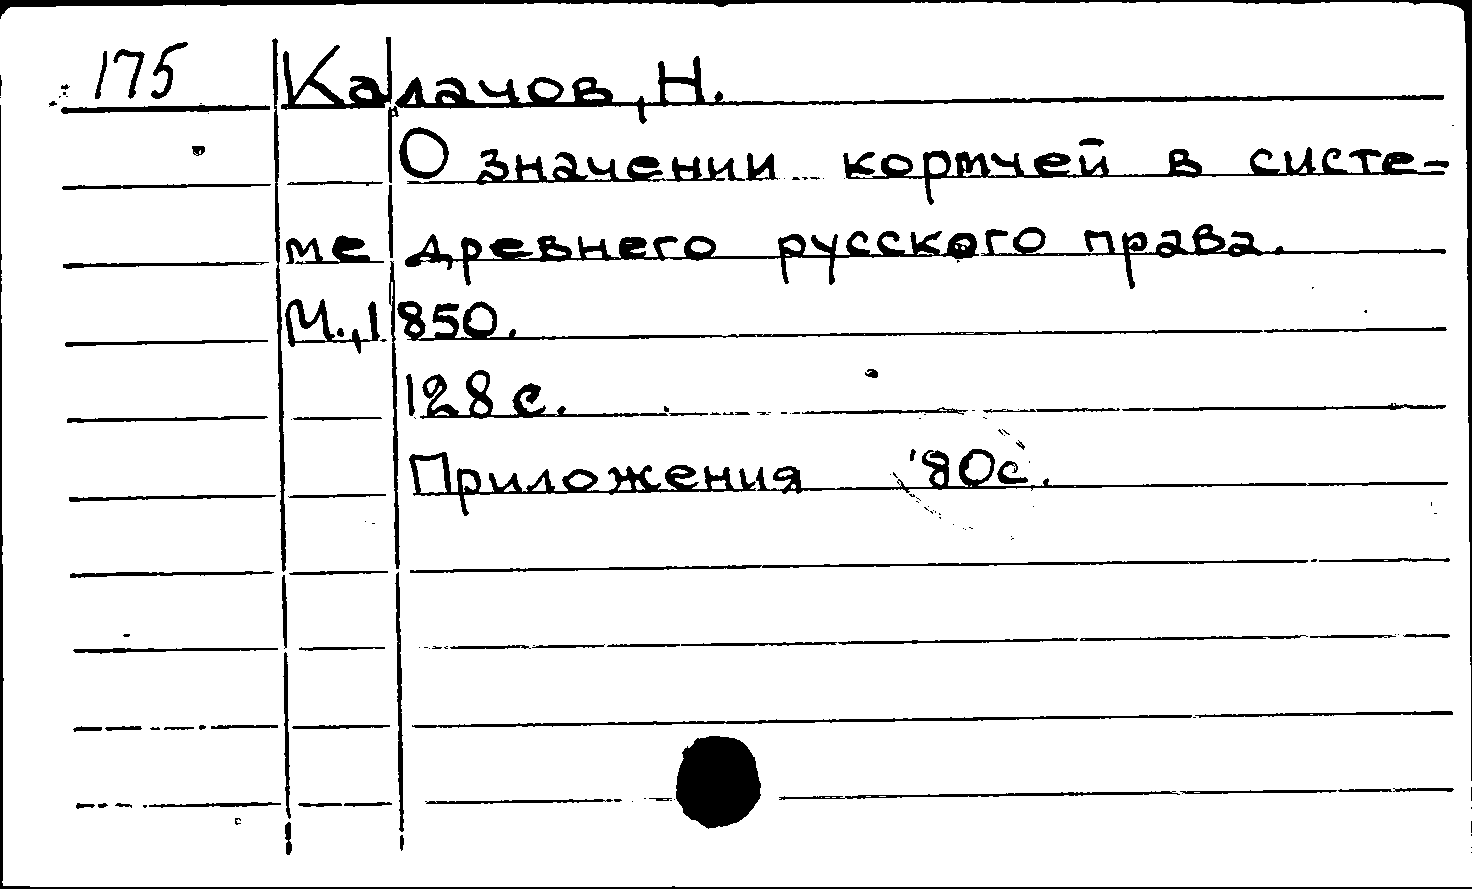 175 Калачов, Н.
О значении кормчей в систе=
ме древнего русского права.
М., 1850.
128 с.
Приложения 80с.